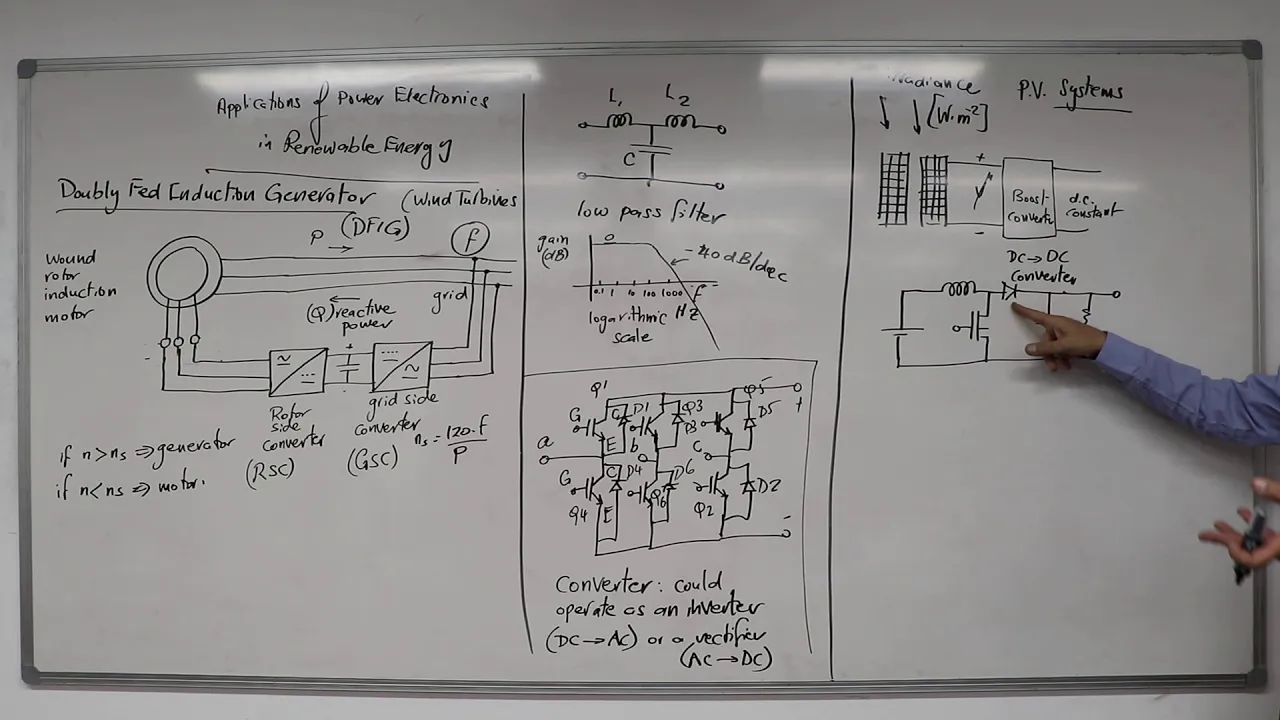 Applications of Power Electronics
in Renewable Energy
Doubly Fed Induction Generator (Wind Turbines
(DFIG)
P
f
wound
rotor
induction
motor
(Q) reactive
power
grid
+
Rotor
side
converter
(RSC)
grid side
converter
(GSC)
ns = 120.f
P
if n>ns => generator
if n<ns => motor.
L1
L2
C
low pass filter
gain
(dB)
0
-40dB/dec
0.1 1 10 100 1000 f
Hz
logarithmic
scale
Q1
G
C
D1
E
Q3
D3
Q5
D5
+
a
b
c
G
C
D4
Q4
E
Q6
D6
Q2
D2
-
Converter: could
operate as an inverter
(DC → AC) or a rectifier
(AC → DC)
P.V. Systems
[W.m-2]
+
V
-
Boost
Converter
d.c.
constant
DC → DC
Converter